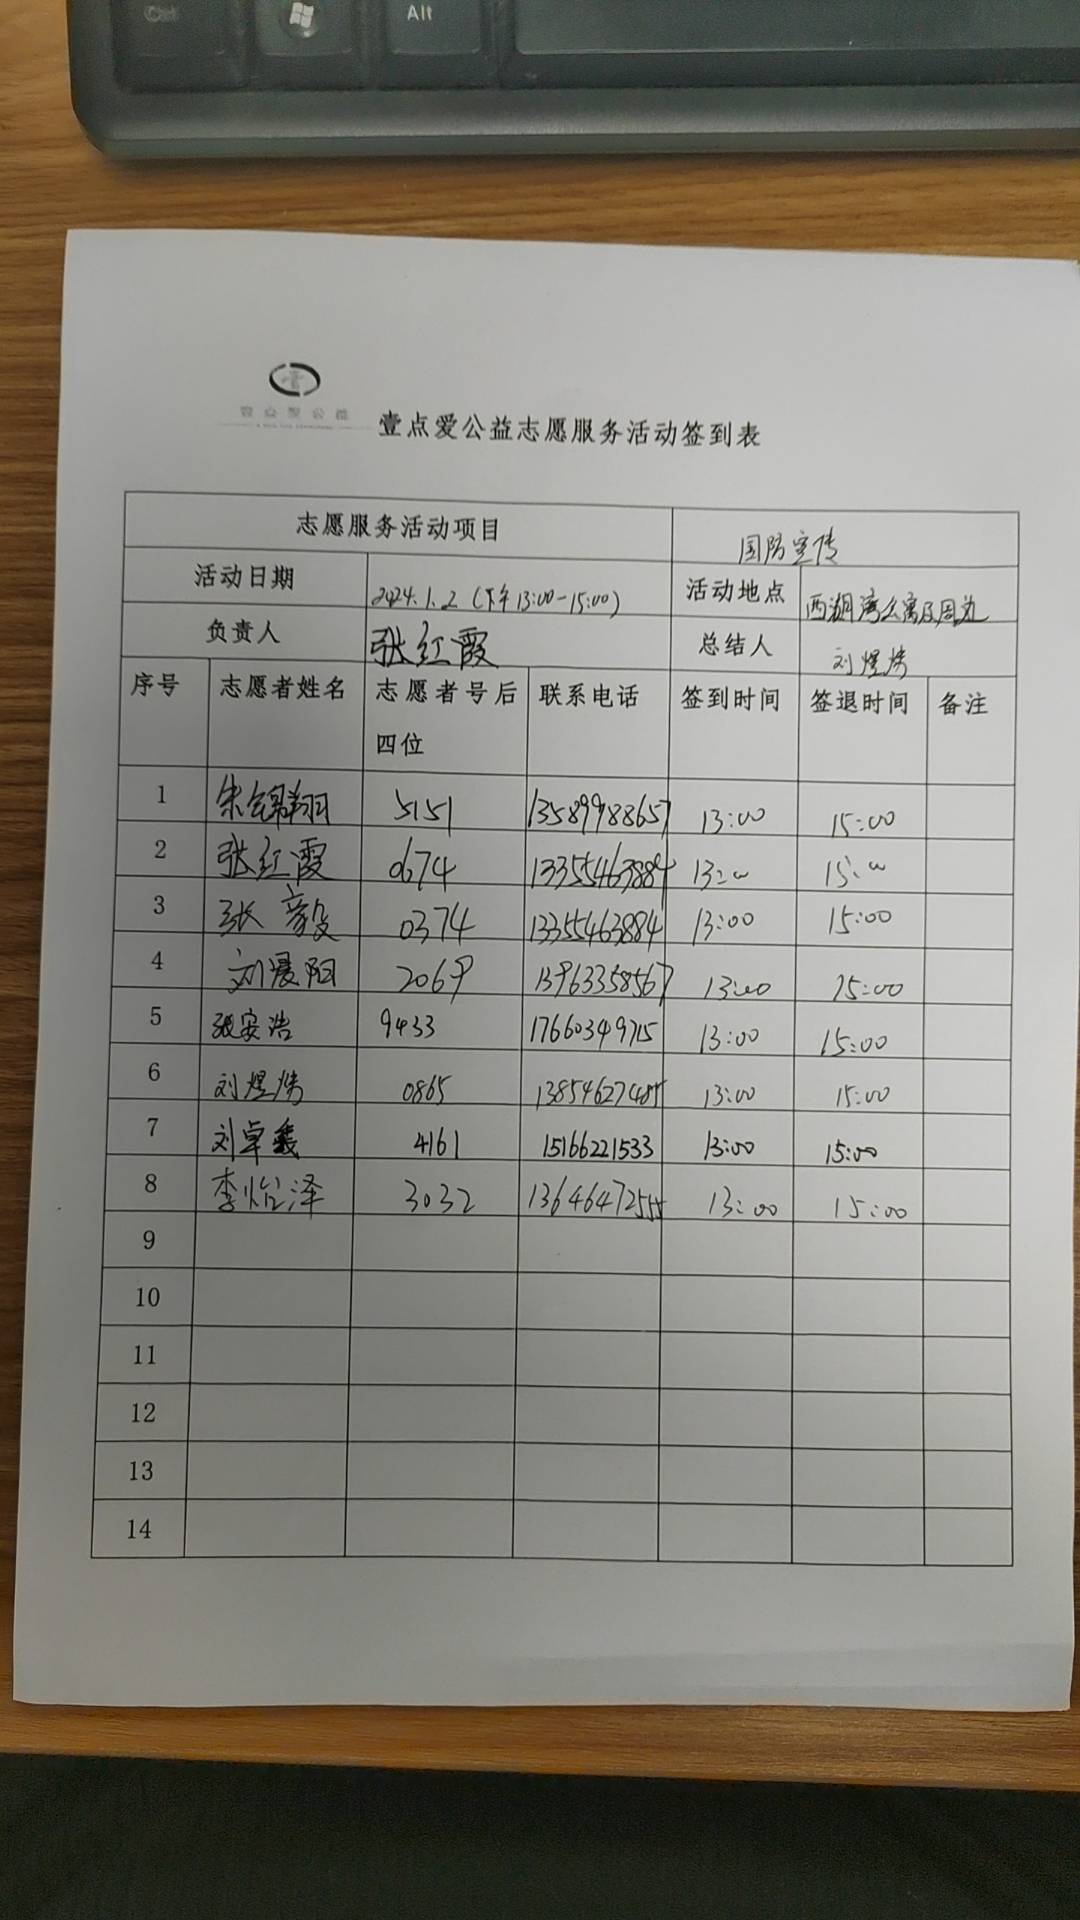 Ctrl Alt
壹点爱公益
壹点爱公益志愿服务活动签到表
志愿服务活动项目 国防宣传
活动日期 2024.1.2（下午13:00-15:00） 活动地点 西湖湾公寓及周边
负责人 张红霞 总结人 刘煜炜
序号 志愿者姓名 志愿者号后四位 联系电话 签到时间 签退时间 备注
1 朱锦翔 5151 13589988657 13:00 15:00
2 张红霞 0674 13355463884 13:00 15:00
3 张毅 0374 13355463884 13:00 15:00
4 刘晨阳 2069 13963358567 13:00 15:00
5 张安浩 9433 17660349715 13:00 15:00
6 刘煜炜 0865 13854627485 13:00 15:00
7 刘卓義 4161 15166221533 13:00 15:00
8 李怡泽 3032 13646472555 13:00 15:00
9
10
11
12
13
14